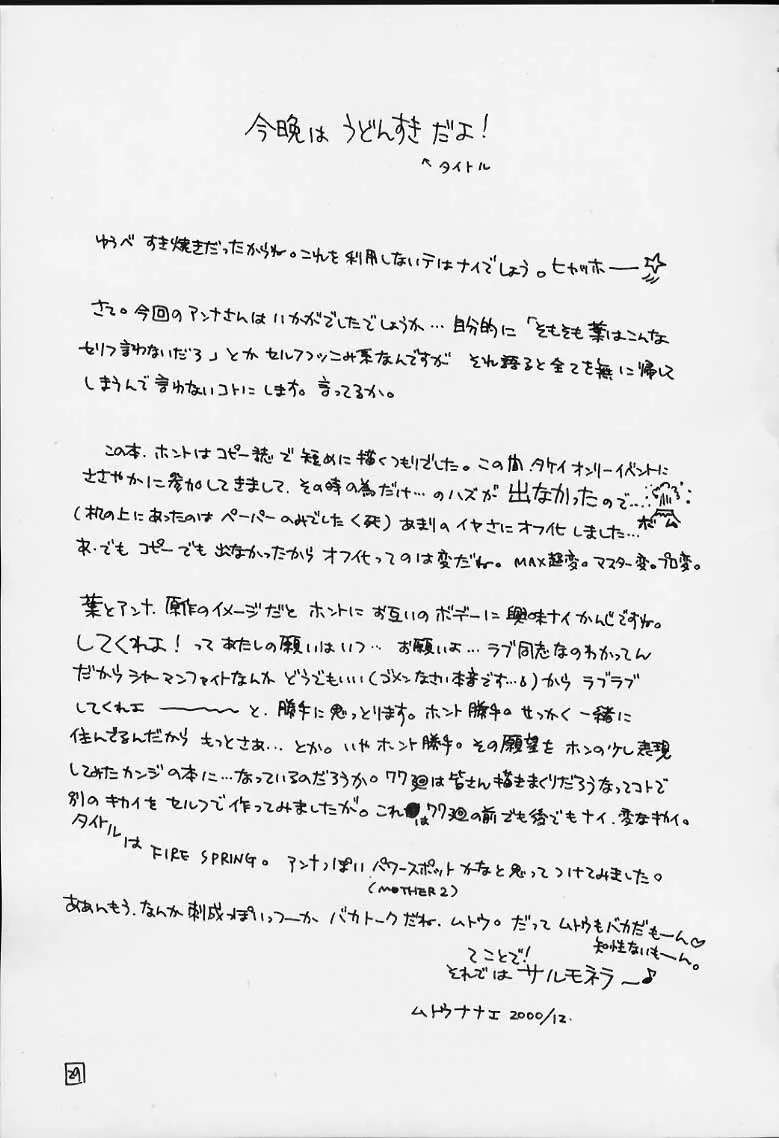 今晩は うどんすき だよ!
↖タイトル
ゆうべ すき焼きだったからね。これを利用しないテはナイでしょう。ヒャッホー☆
さて。今回のアンナさんはいかがでしたでしょうか… 自分的に「そもそも葉はこんな
セリフ言わないだろ」とか セルフつっこみ系なんですが それ語ると全てを無に帰して
しまうんで言わないコトにします。言ってるか。
この本、ホントはコピー誌で短めに描くつもりでした。この間、タケイオンリーイベントに
ささやかに参加してきまして、その時の為だけ…のハズが 出なかったので…。 ボム
(机の上にあったのは ペーパーのみでした<死) あまりのイヤさにオフ化しました…
あ、でも コピーでも出なかったから オフ化ってのは変だね。MAX超変。マスター変。プロ変。
葉とアンナ、原作のイメージだと ホントにお互いのボデーに興味ナイかんじですね。
してくれよ!って あたしの願いはいつ… お願いよ… ラブ同志なのわかってん
だからシャーマンファイトなんか どうでもいい(ゴメンなさい本音です…)から ラブラブ
してくれェ 〜〜〜 と、勝手に思っとります。ホント勝手。せっかく一緒に
住んでるんだから もっとさぁ… とか。いやホント勝手。その願望を ホンの少し表現
してみたカンジの本に…なっているのだろうか。77廻は皆さん描きまくりだろうなってコトで
別のキカイをセルフで作ってみましたが。これは77廻の前でも後でもナイ、変なキカイ。
タイトルは FIRE SPRING。 アンナっぽい パワースポットかなと思ってつけてみました。
(MOTHER2)
ああんもう、なんか 刺成っぽいっつーか バカトークだね、ムトウ。だって ムトウもバカだもーん♡
知性ないもーん。
てことで!
それでは サルモネラ〜♪
ムトウナナエ 2000/12.
29